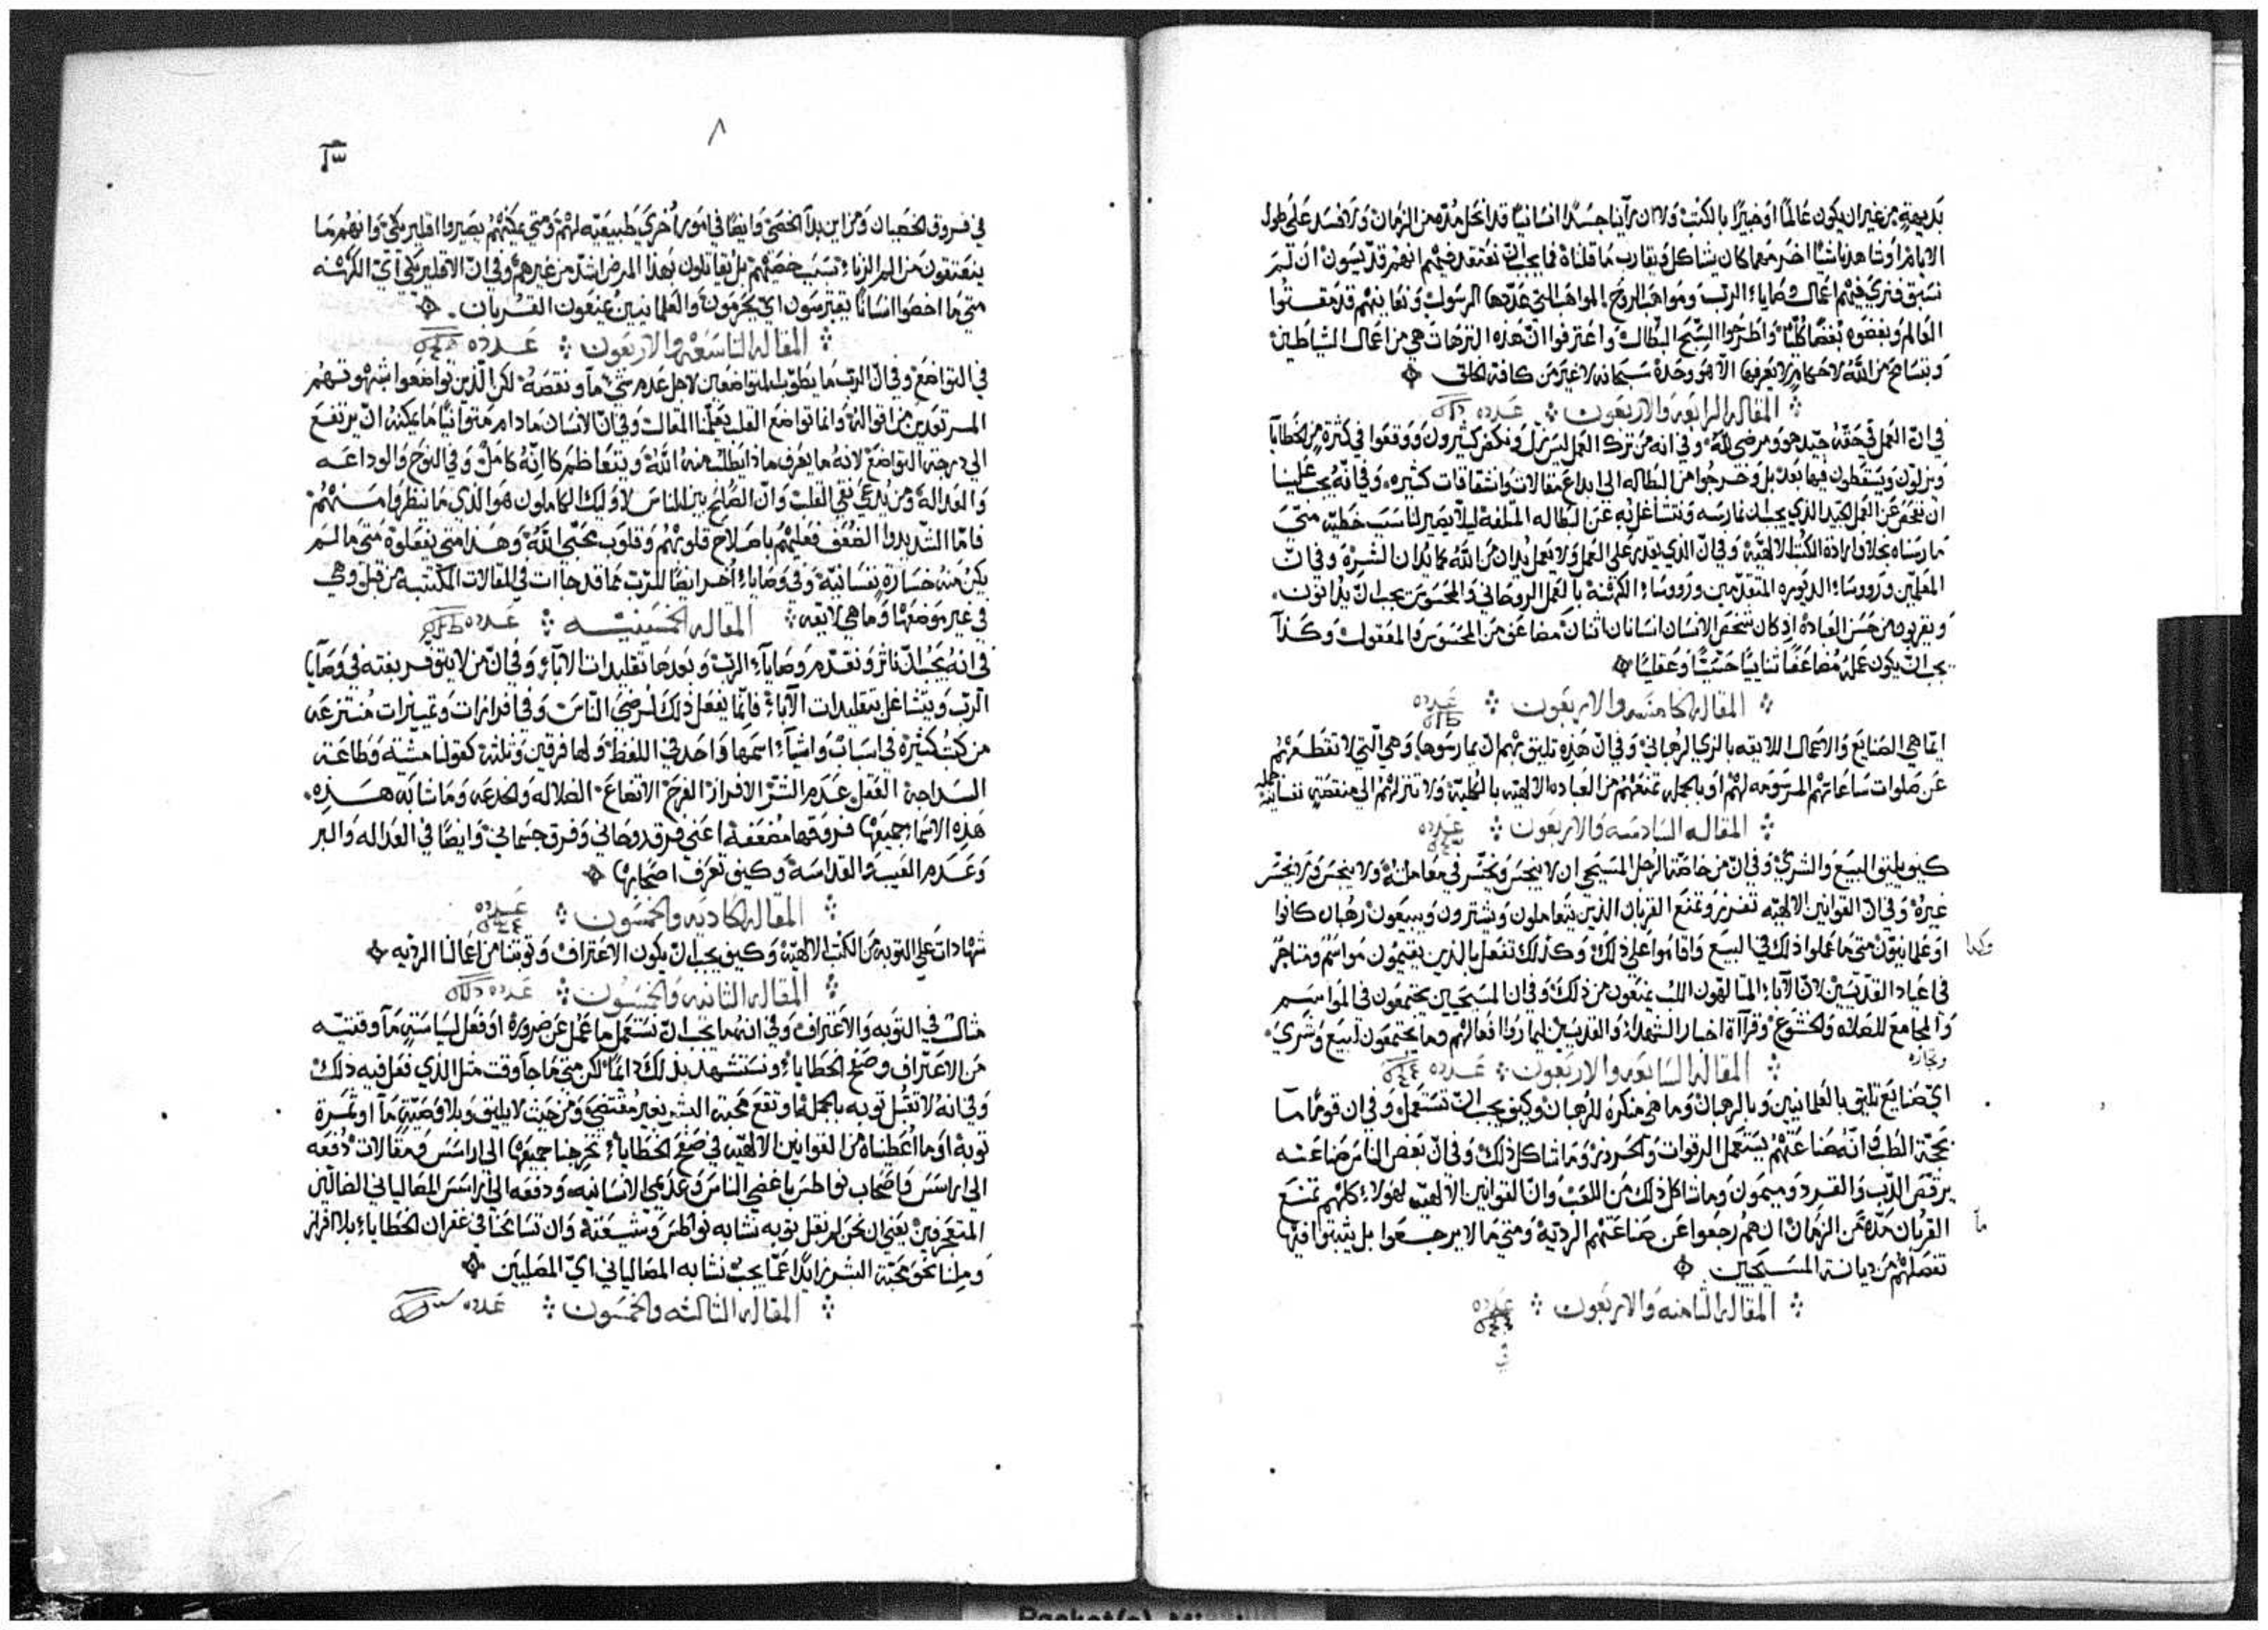 بديهةٍ من غير ان يكون عالمًا او خبيرًا بالكتب ولا ان رأينا جسدًا انسانيًا قد انحل مدّه من الزمان ولم يفسد على طول
الايام او شاهدنا شيئًا اخر مهما كان يشاكل ويقارب ما قلناه فما يجب ان نعتقد فيهم انهم قدّيسون ان لم
نسبق فنرى فيهم اعمال وصايا الرب ومواهب الروح المواهب التي عدّدها الرسول ونعاينهم قد مقتوا
العالم وبغضوه بغضًا كليًّا واطرحوا السبح البطال واعترفوا انّ هذه الترهات هي من اعمال الشياطين
وبتسامح من الله لاحكامٍ لا يعرفها الّا هو وحده سبحانه لا غير من كافة الخلق
المقاله الرابعه والاربعون عدده
في انّ العمل في حقّه جيّد هو ومرضي لله وفي انه من ترك العمل ليس زلّ وتكفر كثيرون ووقعوا في كثرةٍ من الخطايا
ويزلّون ويسقطون فيما بعد بل وخرجوا من البطاله الى ابداع مقالات وانشقاقات كثيره وفي انّه يجب علينا
ان نفحص عن العمل الجيد الذي يجب ان نمارسه ونتشاغل به عن البطاله المتلفة ليلا يصير لنا سبب خطيّه متى
مارسناه بخلاف ارادة الكتب الالهيّة وفي انّ الذي يقدر على العمل ولا يعمل يُدان من الله كما يُدان الشره وفي انّ
المعلّمين ورووساء الديوره المتقدمين ورووساء الكهنة بالعمل الروحاني والمحسوس يجب ان يدانون
ويقربون من حسن العباده اذ كان شخص الانسان انسانان اثنان مضاعف من المحسوس والمعقول وكذا
يجب ان يكون عمله مضاعفًا ثنائيًا حسّيًا وعقليًا
المقاله الخامسه والاربعون عدده
ايّما هي الصنايع والاعمال اللايقه بالزي الرهباني وفي انّ هذه تليق بهم ان يمارسوها وهي الّتي لا تقطعهم
عن صلوات ساعاتهم المرسومه لهم او بالجمله تمنعهم من العباده الالهيّه بالكلية ولا تنزلهم الى منقصةٍ نفسانيّةٍ
المقاله السادسه والاربعون عدده
كيف يليق البيع والشري وفي انّ من خاصّة الرجل المسيحي ان لا يخسر في معاملته ولا يخسر
غيره وفي انّ القوانين الالهيّه تفرز وتمنع القربان الذين يتعاملون ويشترون ويبيعون رهبان كانوا
او علمانيّون متى ما عملوا ذلك في البيع واقاموا على ذلك وكذلك تفعل بالذين يقيمون مواسم ومتاجر
في اعياد القدّيسين لانّ الآباء المتالهون اللب يمنعون من ذلك وفي ان المسيحيين يجتمعون في المواسم
والمجامع للصلاه والخشوع وقراآة اخبار الشهداء والقديسين ليماردوا افعالهم وما يجتمعون لبيع وشري
وتجاره
المقاله السابعه والاربعون عدده
ايّ صنايع تليق بالعلمانيين وبالرهبان وما هي منكره للرهبان وكيف يجب ان تستعمل وفي ان قومًا ما
بحجّة الطب وانّه صناعتهم يستعمل الرقوات والحروز وما شاكل ذلك وفي انّ بعض الناس صناعته
يرقّص الدّب والقرد وميمون وما شاكل ذلك من اللعب وانّ القوانين الالهيّه لهولاء كلهم تمنع
القربان مدّه من الزمان ان هم رجعوا عن صناعتهم الرديّه ومتى ما لا يرجعوا بل يثبتوا فيها
تفصلهم من ديانة المسيحيين
المقاله الثامنه والاربعون عدده
في
٨
في فروق الخصيان ومن اين بدأ الخصي وايضًا في امور اخرى طبيعيّه لهم ومتى يمكنهم يصيروا اقليريكي وانهم ما
ينعتقون من الم الزناء بسبب خصيّتهم بل يقاتلون بهذا المرض اشدّ من غيرهم وفي انّ الاقليريكي ايّ الكهنه
متى ما اخصوا انسانًا يقترسون اي يحرمون والعلمانيين يمنعون القربان
المقاله التاسعه والاربعون عدده
في التواضع وفي انّ الرب ما يطوّب المتواضعين لاجل عدم شيء ما ونقصه لكن الّذين تواضعوا بشهوتهم
المرتعدين من اقواله وانما تواضع القلب يعلّمنا المقال وفي انّ الانسان ما دام متوانيًا ما يمكنه ان يرتفع
الى درجة التواضع لانه ما يعرف ماذا يطلب منه الله ويتعاظم كانّه كامل وفي النوح والوداعه
والعداله ومن يُدعى نقي القلب وانّ الصلح بين الناس لاوليك الكاملون هو الذي ما ينظروا منهم
فامّا الشديدوا الضعف فعليهم باصلاح قلوبهم وقلوب محبّي الله وهذا متى يفعلوه متى ما لم
يكن منه خسارةٍ نفسانيّة وفي وصايا أخر ايضًا للرب مما قد جاات في المقالات المكتتبه من قبل وهي
في غير موضعها وما هي لايقه المقاله الخمسينيّه عدده
في انه يجب ان نأثر ونقدّم وصايا الرب وبعدها تقليدات الآباء وفي انّ من لا يتق فريغته في وصايا
الرب ويتشاغل بتقليدات الآباء فانّما يفعل ذلك لرضى الناس وفي افرازات وتمييزات منتزعه
من كتب كثيرة في اسباب واشياء اسمها واحد في اللفظ ولها فرقين وثلثة كقولنا مشيّة وطاعة
السداجة الغفل عدم الشر الافراز الفرح الاتضاع الضلاله والخدعه وما شابه هذه
هذه الاسماء جميعها فروقها مضعفة اعني فرق روحاني وفرق جسماني وايضًا في العداله والبر
وعدم العيب والقداسة وكيف تعرف اصحابها
المقاله الحاديه والخمسون عدده
شهادات على التوبه من الكتب الالهيّة وكيف يجب ان يكون الاعتراف وتوبتنا من اعمالنا الرديه
المقاله الثانيه والخمسون عدده
مثال في التوبه والاعتراف وفي انهما يجب ان نستعمل ما عمل عن ضرورة او فعل لسياسةٍ ما وقتيّه
من الاعتراف وصفح الخطايا ونستشهد بذلك دايمًا لكن متى ما جاء وقت مثل الذي فعل فيه ذلك
وفي انه لا تقبل توبه بالجمله او تقع محبة الشر بغير مقتضى ومن حيث لا يليق وبلا وصيّةٍ ما او ثمرة
توبة او ما اعطيناه من القوانين الالهيّه في صفح الخطايا تخرجنا جميعها الى اراسس ومقالات دفعه
الى اراسس واصحاب نواطس باغضي الناس وعدمي الانسانيه ودفعه الى اراسس المصالياني الضالّين
المتعجرفين يعني ان نحن لم نقبل توبه نشابه نواطس وشيعته وان تسامحنا في غفران الخطايا بلا افراز
وملنا نحو محبّة الشر زايدًا عمّا يجب نشابه المصالياني ايّ المصليين
المقاله الثالثه والخمسون عدده